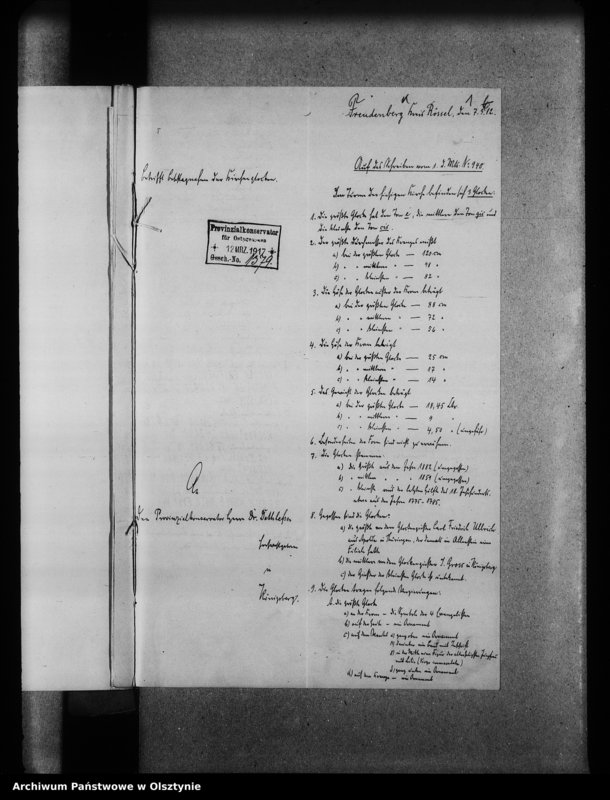 Freudenberg Kreis Rössel, den 7.3.
Betrifft Beschlagnahme der Kirchenglocken.
Provinzialkonservator
für Ostpreussen
12 MRZ. 1917
Gesch.-No. 1379.
Auf das Schreiben vom 1. d. Mts. No. 945.
Im Turm der hiesigen Kirche befinden sich 3 Glocken.
1. Die größte Glocke hat den Ton e, die mittlere den Ton gis und
die kleinste den Ton
2. Der größte Durchmesser des Kranzes mißt
a) bei der größten Glocke — 120 cm
b) " " mittleren " — 98 "
c) " " kleinsten " — 82 "
3. Die Höhe der Glocken außer der Krone beträgt
a) bei der größten Glocke — 88 cm
b) " " mittleren " — 72 "
c) " " kleinsten " — 56 "
4. Die Höhe der Krone beträgt
a) bei der größten Glocke — 25 cm
b) " " mittleren " — 17 "
c) " " kleinsten " — 14 "
5. Das Gewicht der Glocken beträgt
a) bei der größten Glocke — 18,45 Ztr.
b) " " mittleren " — 9 "
c) " " kleinsten " — 4,50 " (ungefähr)
6. Besonderheiten der Form sind nicht zu
7. Die Glocken stammen
a) die größte aus dem Jahre 1882 (umgegossen)
b) " mittlere " " " 1854 (umgegossen)
c) " kleinste aus der letzten Hälfte des 18. Jahrhunderts.
etwa aus den Jahren 1775-1785.
An
den Provinzialkonservator Herrn Dr. Dethlefsen
Hochwohlgeboren
in
Königsberg.
8. Gegossen sind die Glocken:
a) die größte von dem Glockengießer Carl Friedrich Ulbrich
aus Apolda in Thüringen, der damals in Allenstein eine
Filiale hatte
b) die mittlere von dem Glockengießer J. Gross in Königsberg.
c) der Gießer der kleinsten Glocke ist unbekannt.
9. Die Glocken tragen folgende Verzierungen.
A. die größte Glocke
a) an der Krone = die Symbole der 4 Evangelisten
b) auf der Haube - ein Ornament
c) auf dem Mantel a) ganz oben ein Ornament
β) darunter ein Band mit Inschrift
γ) in der Mitte eine Figur der allerseligsten Jungfrau
mit Lilie (Virgo immaculata)
δ) ganz unten ein Ornament
d) auf dem Kranze = ein Ornament
Archiwum Państwowe w Olsztynie